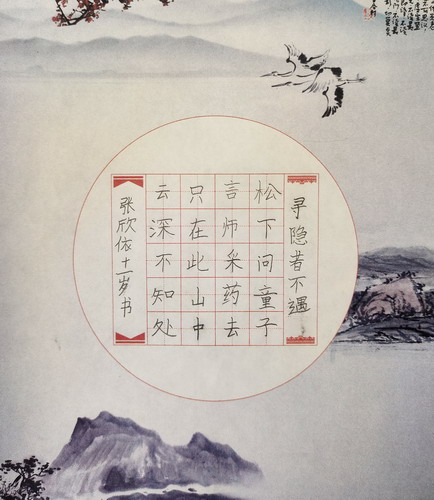 寻隐者不遇
松下问童子
言师采药去
只在此山中
云深不知处
张欣依十一岁书